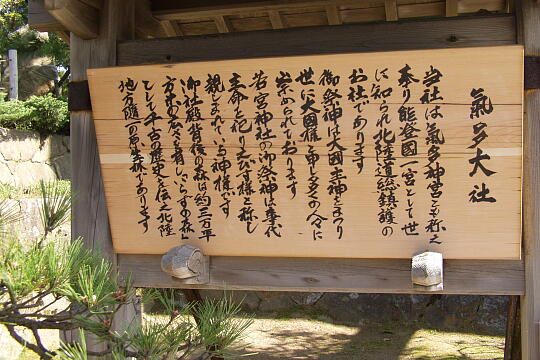 氣多大社
当社は氣多神宮とも称え
奉り能登國一宮として世
に知られ北陸道総鎮護の
お社であります
御祭神は大國主神とまつり
世に大國様と申し多くの人々に
崇められております
若宮神社の御祭神は事代
主命を祀り恵比須様と称し
親しまれている神様です
御社殿背後の森は約三万平
方米の広さを有し入らずの森と
として千古の歴史を伝え北陸
地方随一の原生林であります